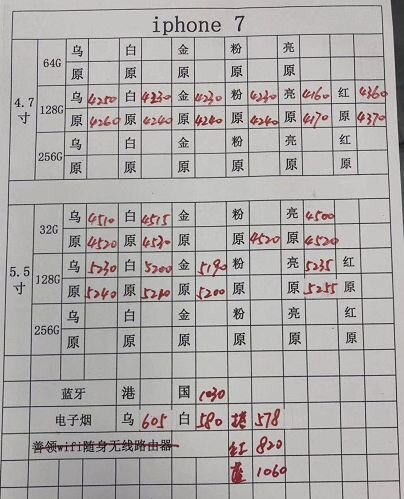 iphone 7
64G 乌 白 金 粉 亮
原 原 原 原 原
4.7寸 128G 乌 4250 白 4230 金 4230 粉 4230 亮 4160 红 4360
原 4260 原 4240 原 4240 原 4240 原 4170 原 4370
256G 乌 白 金 粉 亮 红
原 原 原 原 原 原
5.5寸 32G 乌 4510 白 4515 金 粉 亮 4500
原 4520 原 4530 原 原 4520 原 4520
128G 乌 5230 白 5200 金 5190 粉 亮 5235 红
原 5240 原 5210 原 5200 原 原 5255 原
256G 乌 白 金 粉 亮 红
原 原 原 原 原 原
蓝牙 港 国 1030
电子烟 乌 605 白 580 578
善领wifi随身无线路由器 红 820
1060